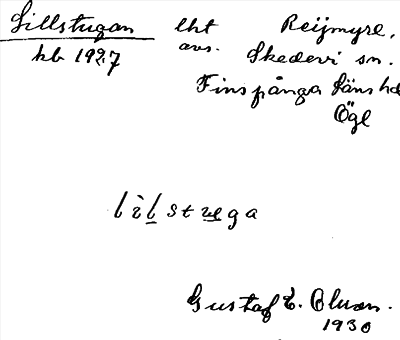 Lillstugan lht Reijmyre,
kb 1927 avs. Skedevi sn.
Finspånga läns hd
Ögl
lìlstuga
Gustaf E.
1930